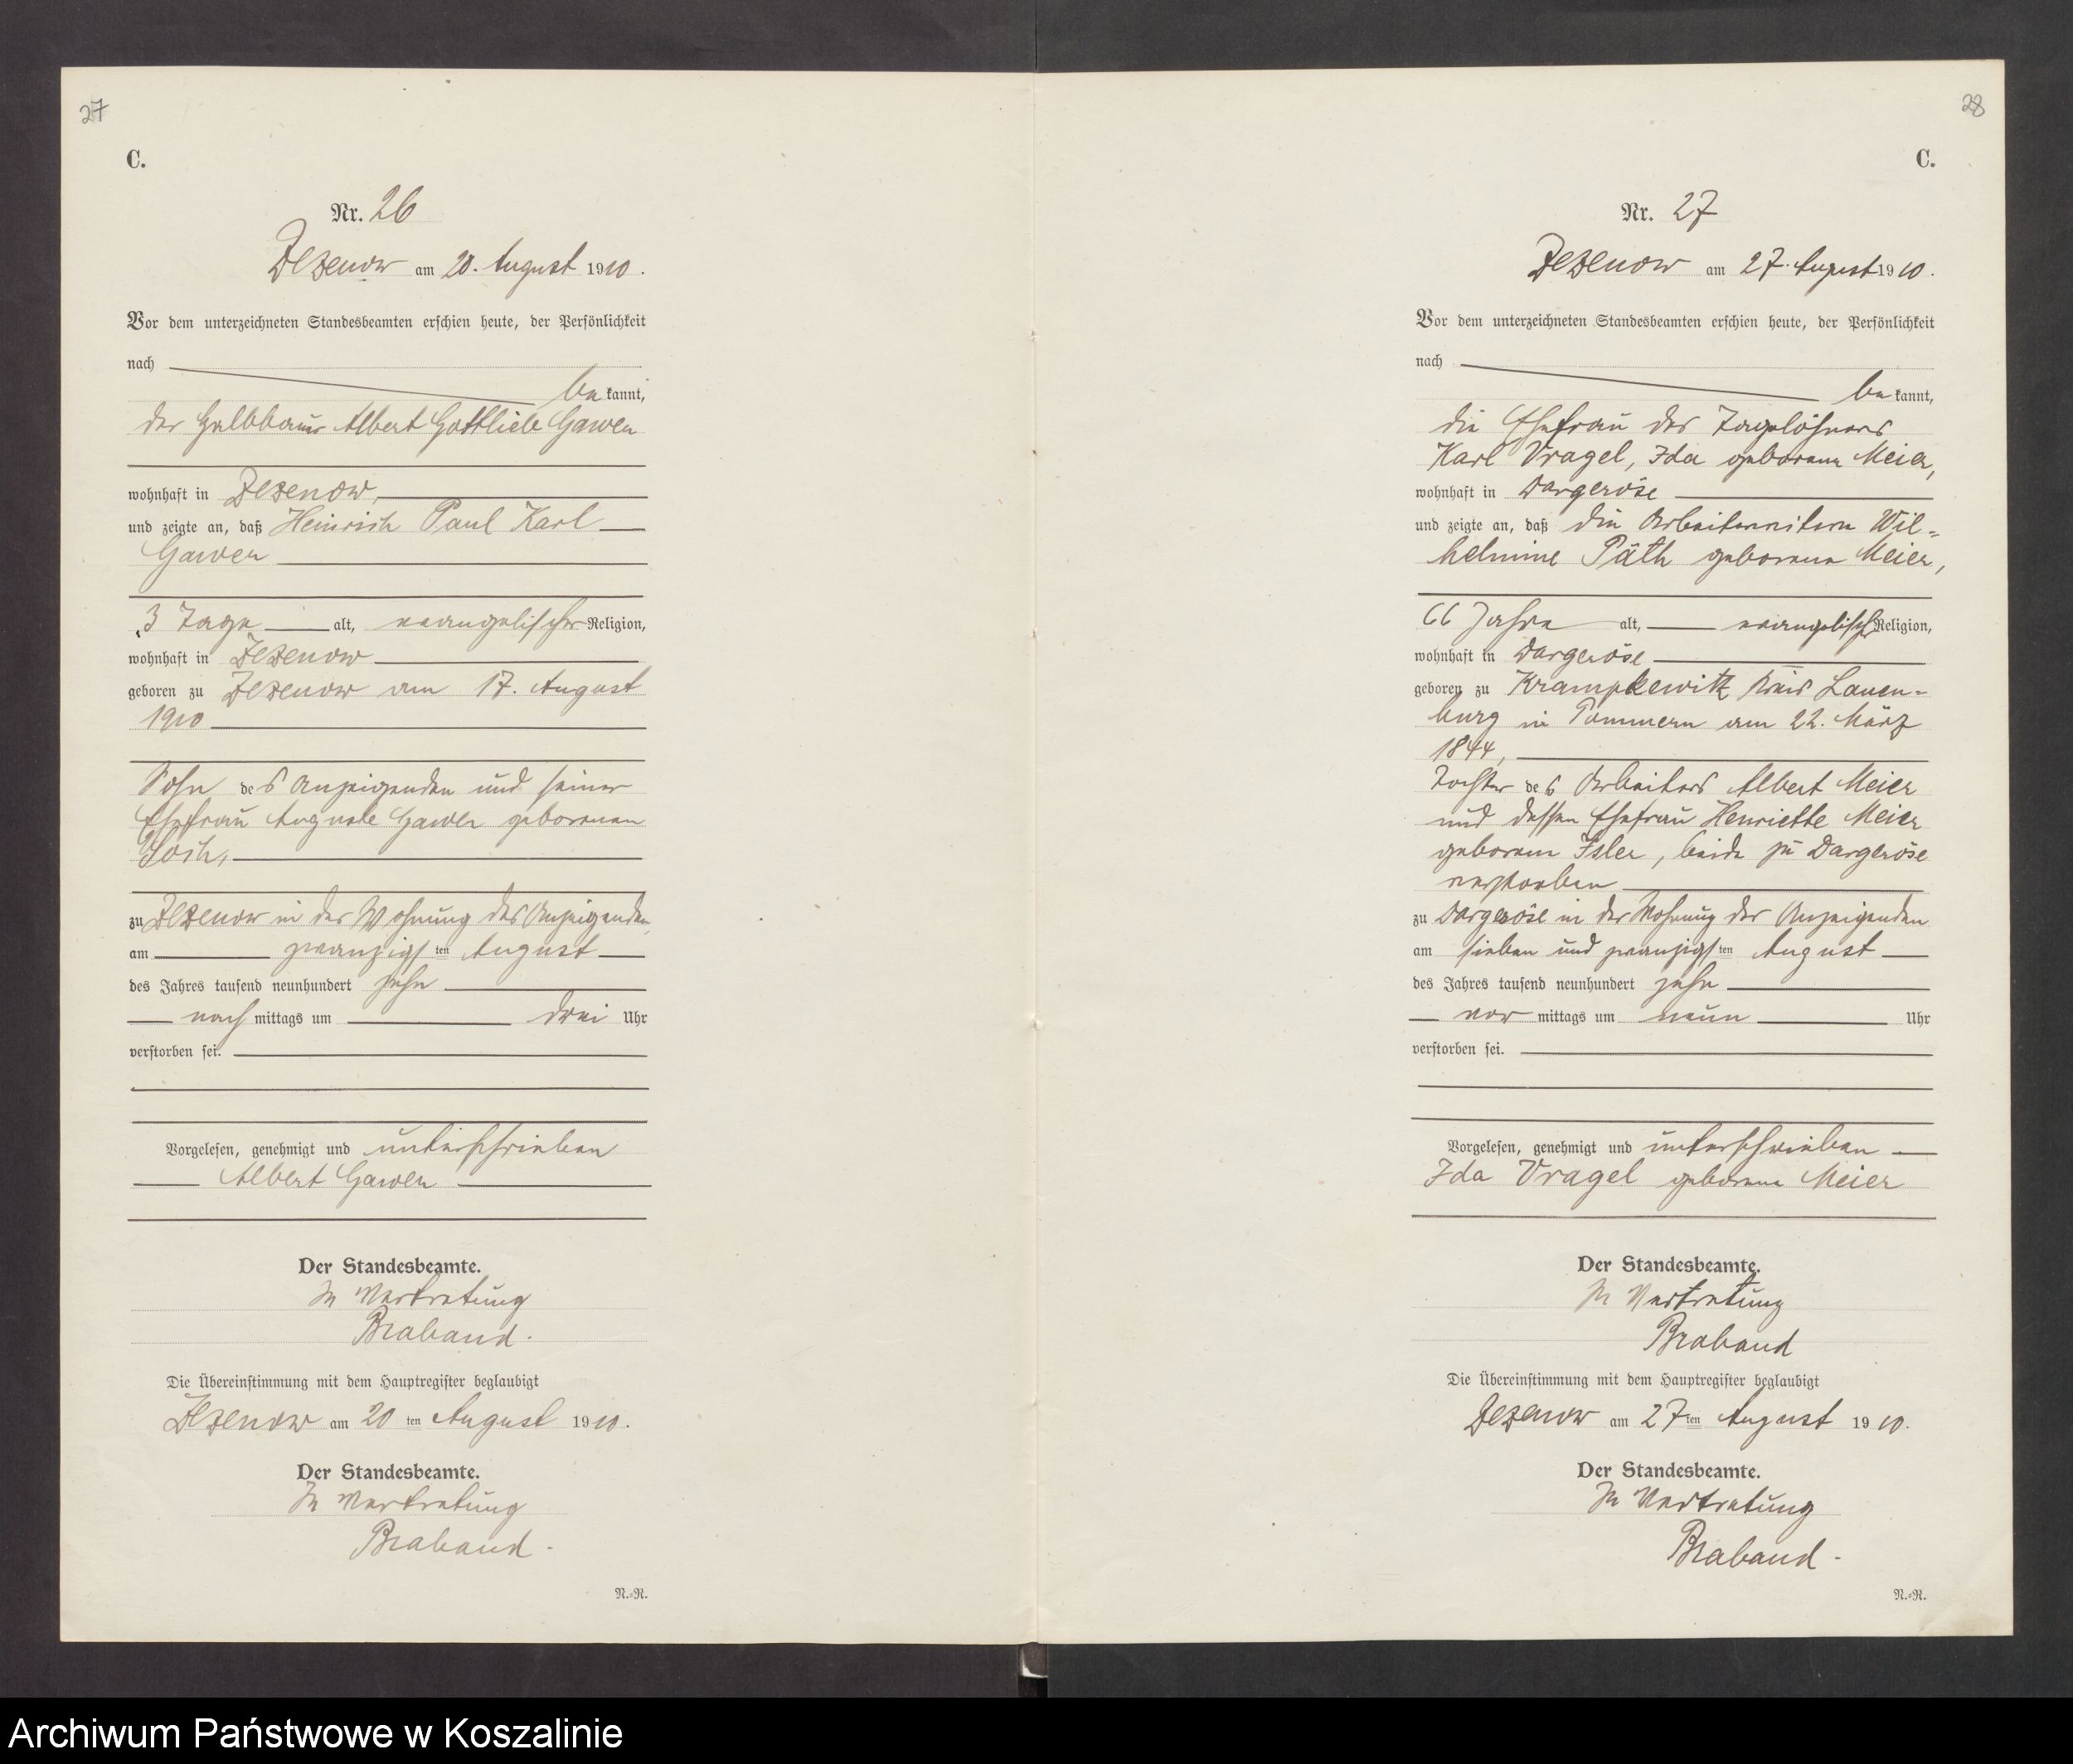 27
C.
Nr. 26
Zezenow am 20. August 1910.
Vor dem unterzeichneten Standesbeamten erschien heute, der Persönlichkeit
nach
be kannt,
der Halbbauer Albert Gottlieb Gawen
wohnhaft in Zezenow,
und zeigte an, daß Heinrich Paul Karl
Gawen
3 Tage alt, evangelischer Religion,
wohnhaft in Zezenow
geboren zu Zezenow am 17. August
1910
Sohn des Anzeigenden und seiner
Ehefrau Auguste Gawen geborenen
zu Zezenow in der Wohnung des Anzeigenden,
am zwanzigsten August
des Jahres tausend neunhundert zehn
nach mittags um drei Uhr
verstorben sei.
Vorgelesen, genehmigt und unterschrieben
Albert Gawen
Der Standesbeamte.
In Vertretung
Braband.
Die Übereinstimmung mit dem Hauptregister beglaubigt
Zezenow am 20 ten August 1910.
Der Standesbeamte.
In Vertretung
Braband.
N.-R.
28
C.
Nr. 27
Zezenow am 27. August 1910.
Vor dem unterzeichneten Standesbeamten erschien heute, der Persönlichkeit
nach
be kannt,
die Ehefrau des Tagelöhners
Karl Vragel, Ida geborene Meier,
wohnhaft in Dargeröse
und zeigte an, daß die Wil-
helmine Päth geborene Meier,
66 Jahre alt, evangelisch Religion,
wohnhaft in Dargeröse
geboren zu Krampkewitz Kreis Lauen-
burg in Pommern am 22. März
1844,
Tochter des Arbeiters Albert Meier
und dessen Ehefrau Henriette Meier
geborene Isler, beide zu Dargeröse
verstorben
zu Dargeröse in der Wohnung der Anzeigenden
am sieben und zwanzigsten August
des Jahres tausend neunhundert zehn
vor mittags um neun Uhr
verstorben sei.
Vorgelesen, genehmigt und unterschrieben
Ida Vragel geborene Meier
Der Standesbeamte.
In Vertretung
Braband
Die Übereinstimmung mit dem Hauptregister beglaubigt
Zezenow am 27ten August 1910.
Der Standesbeamte.
In Vertretung
Braband.
N.-R.
Archiwum Państwowe w Koszalinie